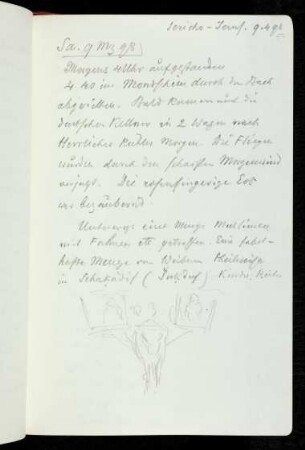 Jericho - Jerus. 9.4.98
Sa. 9 Mz 98
Morgens 4 Uhr aufgestanden
4.40 im Mondschein durch den Bach
abgeritten. Bald kamen uns die
deutschen Kellner in 2 Wagen nach
Herrlicher kühler Morgen. Die Fliegen
wurden durch den scharfen Morgenwind
verjagt. Die rosenfingerige Eos
war bezaubernd.
Unterwegs eine Menge Muslimen
mit Fahnen etc getroffen. Eine fabel-
hafte Menge von Weibern theilweise
in ( ) Kinder,